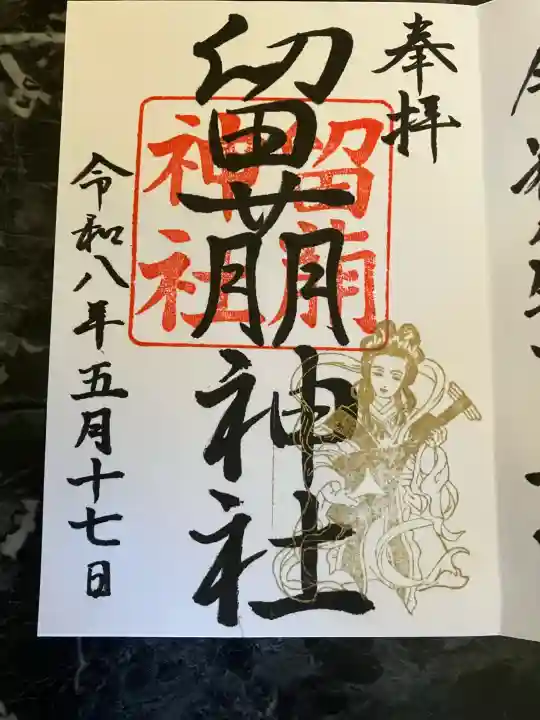 奉拝
留萌神社
留萌
神社
令和八年五月十七日